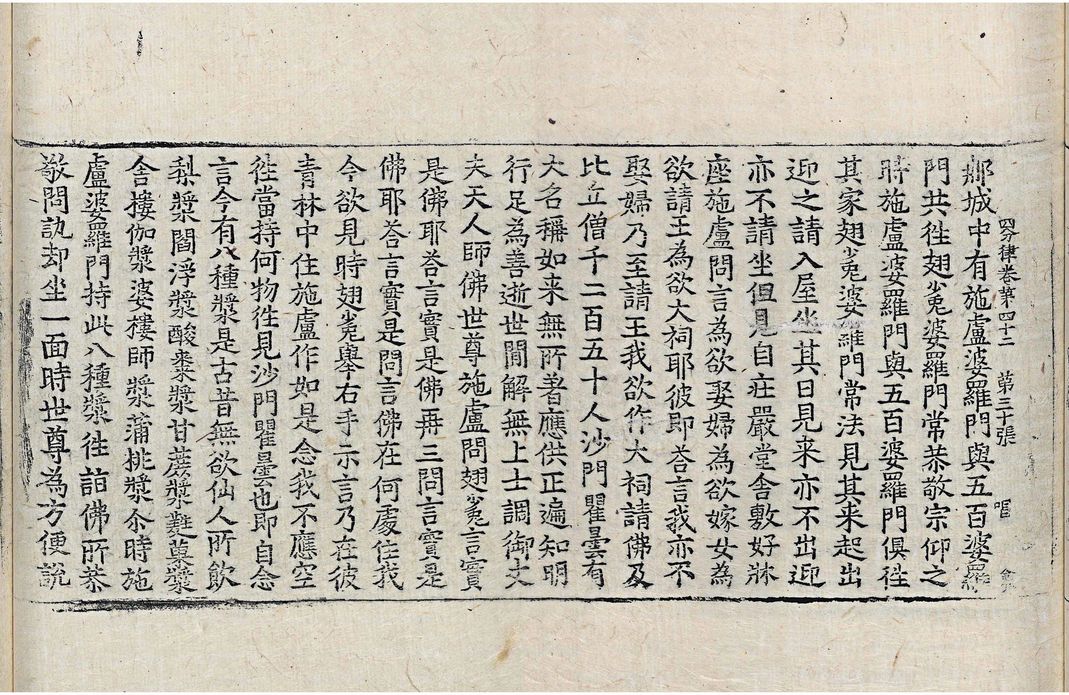 四分律卷第四十二 第三十張 唱
那城中有施盧婆羅門與五百婆羅
門共徃翅㝹婆羅門常恭敬宗仰之
時施盧婆羅門與五百婆羅門俱徃
其家翅㝹婆羅門常法見其来起出
迎之請入屋坐其日見来亦不出迎
亦不請坐但見自莊嚴堂舎敷好牀
座施盧問言為欲娶婦為欲嫁女為
欲請王為欲大祠耶彼即荅言我亦不
娶婦乃至請王我欲作大祠請佛及
比丘僧千二百五十人沙門瞿曇有
大名稱如来無所著應供正遍知明
行足為善逝世間解無上士調御丈
夫天人師佛世尊施盧問翅㝹言實
是佛耶荅言實是佛再三問言實是
佛耶荅言實是問言佛在何處住我
今欲見時翅㝹舉右手示言乃在彼
青林中住施盧作如是念我不應空
徃當持何物徃見沙門瞿曇也即自念
言今有八種漿是古昔無欲仙人所飲
梨漿閻浮漿酸棗漿甘蔗漿蕤菓漿
舎樓伽漿婆樓師漿蒲桃漿尒時施
盧婆羅門持此八種漿徃詣佛所恭
敬問訊却坐一面時世尊為方便説